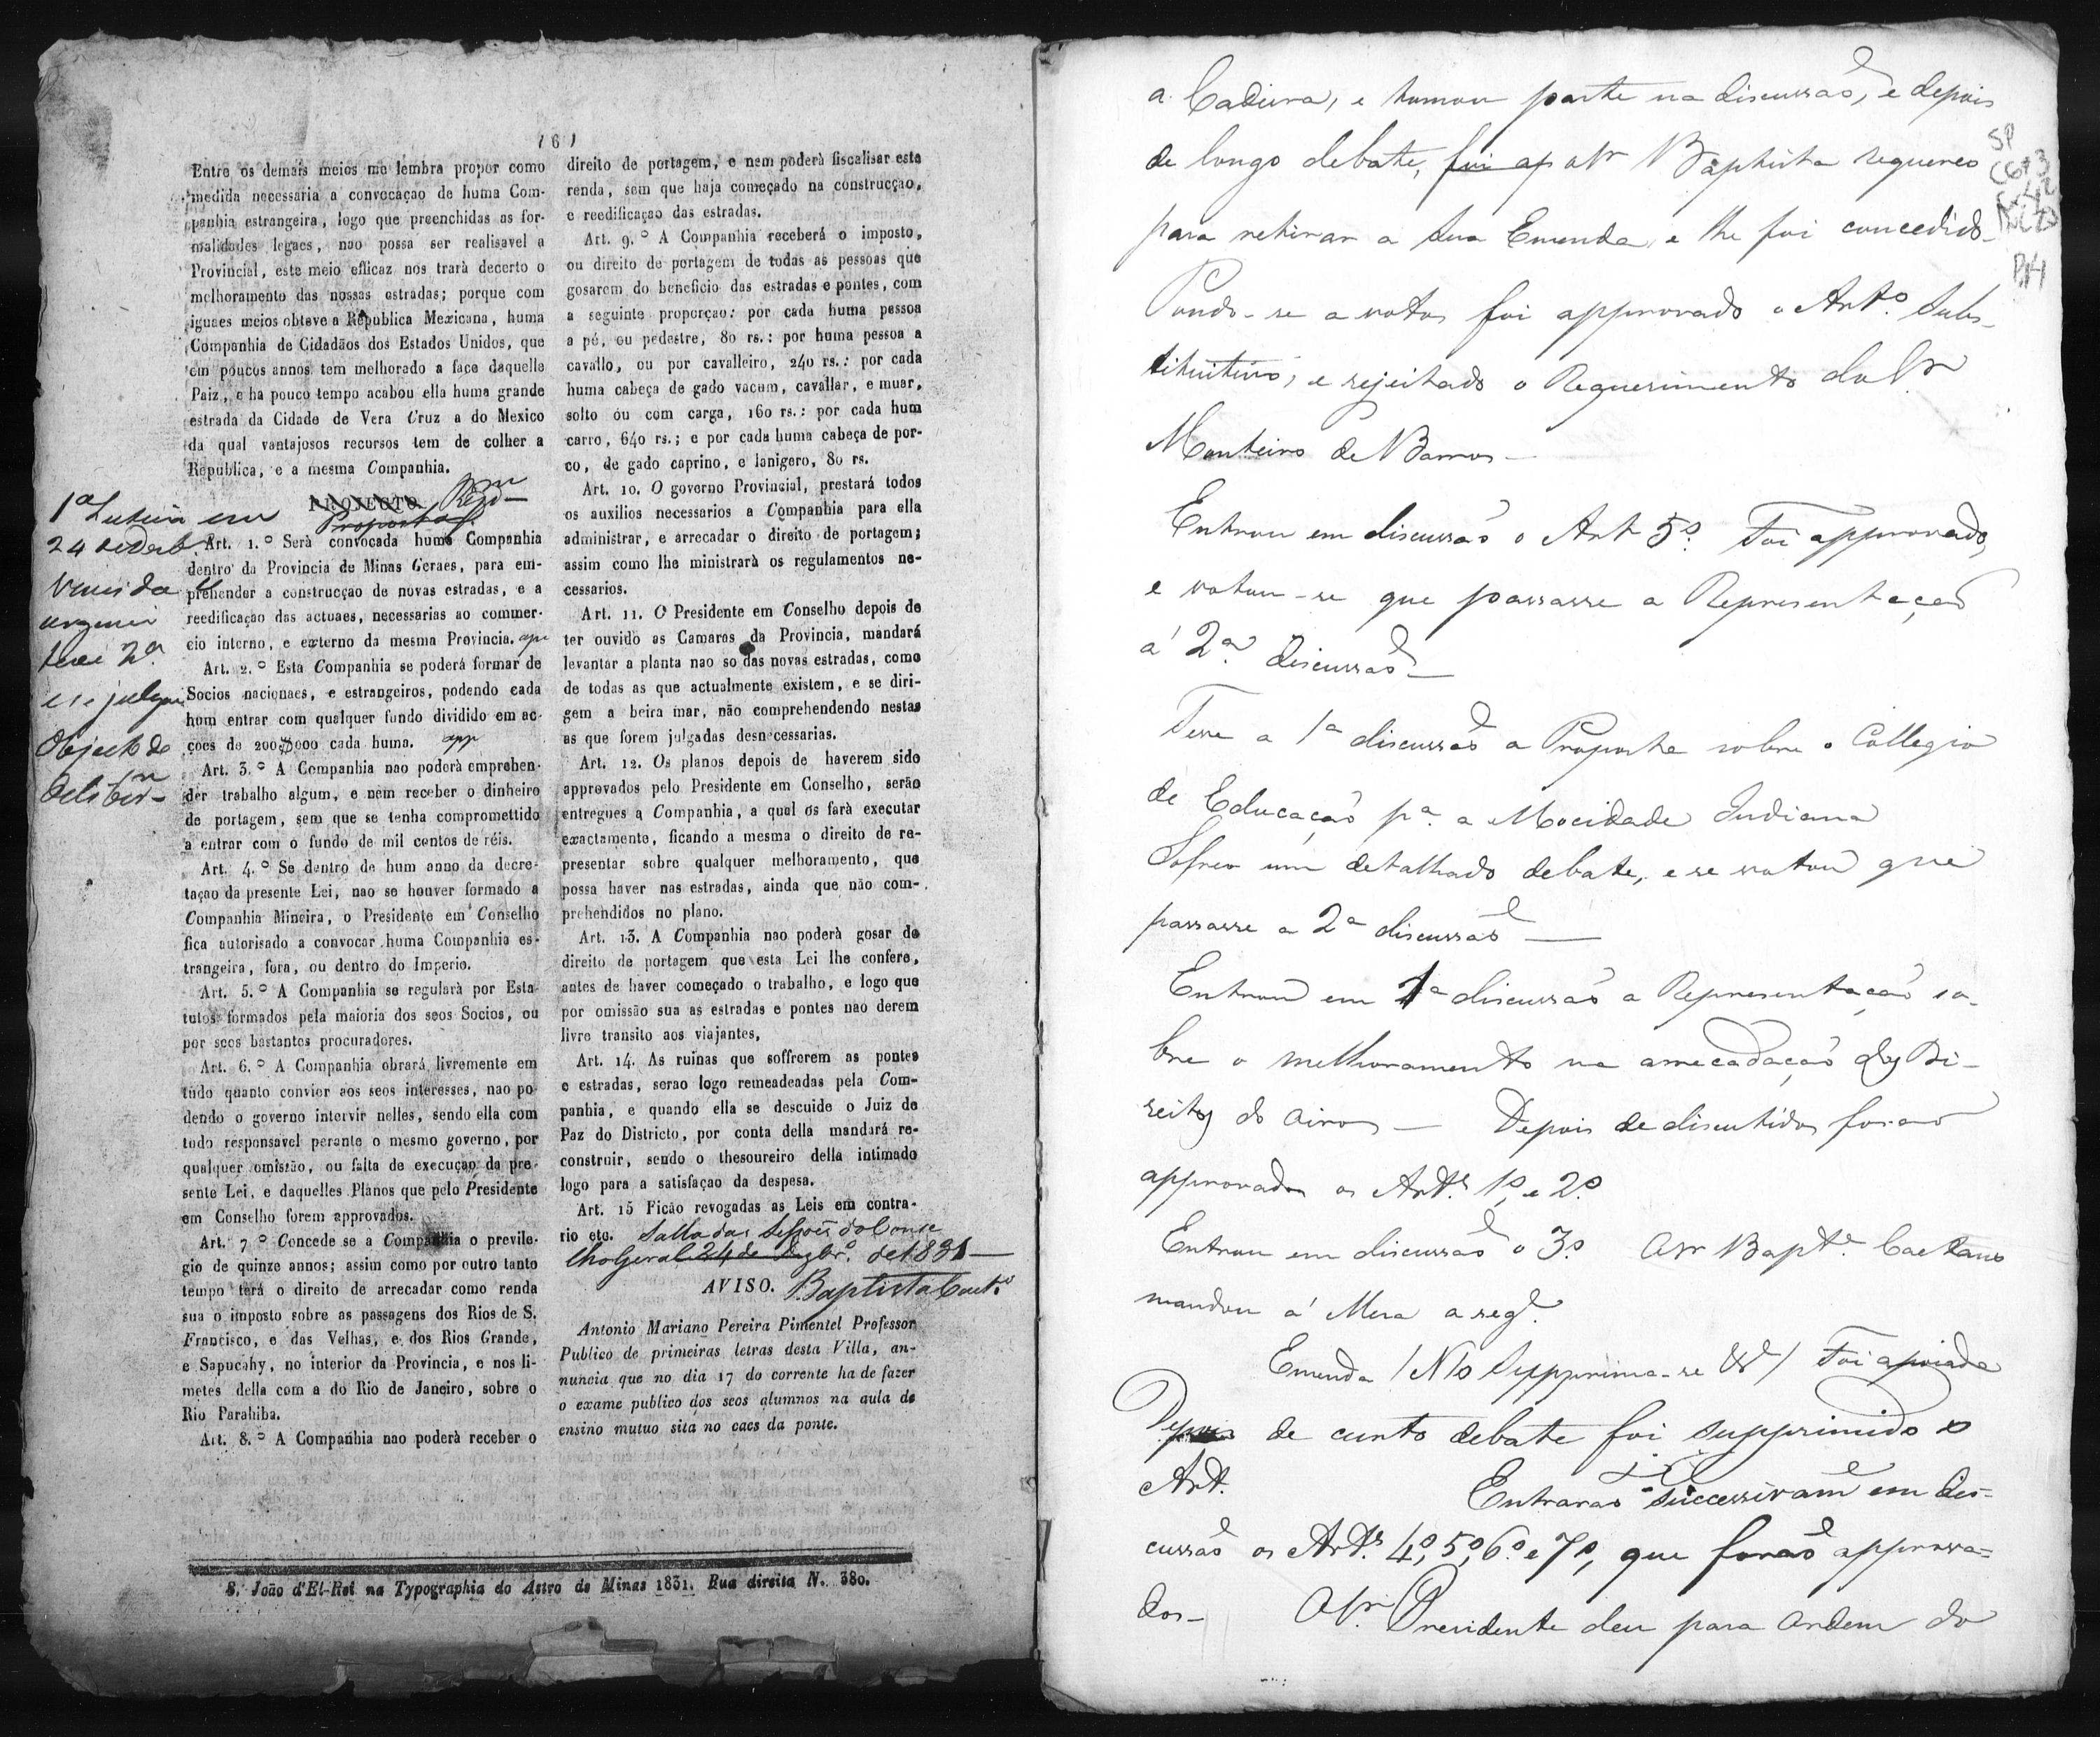 ( 6 )
Entre os demais meios me lembra propor como
medida necessaria a convocaçao de huma Com-
panhia estrangeira, logo que preenchidas as for-
malidades legaes, nao possa ser realisavel a
Provincial, este meio efficaz nos trarà decerto o
melhoramento das nossas estradas; porque com
iguaes meios obteve a Republica Mexicana, huma
Companhia de Cidadãos dos Estados Unidos, que
em poucos annos tem melhorado a face daquelle
Paiz, e ha pouco tempo acabou ella huma grande
estrada da Cidade de Vera Cruz a do Mexico
da qual vantajosos recursos tem de colher a
Republica, e a mesma Companhia.
PROJECTO.
Proposta
1ª Leitura em
24 de Dezb
Vencida
urgencia
teve 2ª
e se julgou
Objecto de
Delibr
Art. 1.º Serà convocada huma Companhia
dentro da Provincia de Minas Geraes, para em-
prehender a construcçao de novas estradas, e a
reedificação das actuaes, necessarias ao commer-
cio interno, e externo da mesma Provincia. app
Art. 2.º Esta Companhia se poderá formar de
Socios nacionaes, e estrangeiros, podendo cada
hum entrar com qualquer fundo dividido em ac-
çoes de 200$000 cada huma. app
Art. 3.º A Companhia nao poderà emprehen-
der trabalho algum, e nem receber o dinheiro
de portagem, sem que se tenha compromettido
a entrar com o fundo de mil contos de réis.
Art. 4.º Se dentro de hum anno da decre-
taçao da presente Lei, nao se houver formado a
Companhia Mineira, o Presidente em Conselho
fica autorisado a convocar huma Companhia es-
trangeira, fora, ou dentro do Imperio.
Art. 5.º A Companhia se regularà por Esta-
tutos formados pela maioria dos seos Socios, ou
por seos bastantes procuradores.
Art. 6.º A Companhia obrará livremente em
tudo quanto convier aos seos interesses, nao po-
dendo o governo intervir nelles, sendo ella com
tudo responsavel perante o mesmo governo, por
qualquer omissão, ou falta de execuçao da pre-
sente Lei, e daquelles Planos que pelo Presidente
em Conselho forem approvados.
Art. 7º Concede se a Companhia o previle-
gio de quinze annos; assim como por outro tanto
tempo terá o direito de arrecadar como renda
sua o imposto sobre as passagens dos Rios de S.
Francisco, e das Velhas, e dos Rios Grande,
e Sapucahy, no interior da Provincia, e nos li-
metes della com a do Rio de Janeiro, sobre o
Rio Parahiba.
Art. 8.º A Companhia nao poderà receber o
direito de portagem, e nem poderà fiscalisar esta
renda, sem que haja começado na construcção,
e reedificaçao das estradas.
Art. 9.º A Companhia receberá o imposto,
ou direito de portagem de todas as pessoas que
gosarem do beneficio das estradas e pontes, com
a seguinte proporçao: por cada huma pessoa
a pé, ou pedestre, 80 rs.: por huma pessoa a
cavallo, ou por cavalleiro, 240 rs.: por cada
huma cabeça de gado vacum, cavallar, e muar,
solto ou com carga, 160 rs.: por cada hum
carro, 640 rs.; e por cada huma cabeça de por-
co, de gado caprino, e lanigero, 80 rs.
Art. 10. O governo Provincial, prestará todos
os auxilios necessarios a Companhia para ella
administrar, e arrecadar o direito de portagem;
assim como lhe ministrarà os regulamentos ne-
cessarios.
Art. 11. O Presidente em Conselho depois de
ter ouvido as Camaras da Provincia, mandará
levantar a planta nao so das novas estradas, como
de todas as que actualmente existem, e se diri-
gem a beira mar, não comprehendendo nestas
as que forem julgadas desnecessarias.
Art. 12. Os planos depois de haverem sido
approvados pelo Presidente em Conselho, serão
entregues a Companhia, a qual os farà executar
exactamente, ficando a mesma o direito de re-
presentar sobre qualquer melhoramento, que
possa haver nas estradas, ainda que não com-
prehendidos no plano.
Art. 13. A Companhia nao poderà gosar do
direito de portagem que esta Lei lhe confere,
antes de haver começado o trabalho, e logo que
por omissão sua as estradas e pontes nao derem
livre transito aos viajantes,
Art. 14. As ruinas que soffrerem as pontes
e estradas, serao logo remeadeadas pela Com-
panhia, e quando ella se descuide o Juiz de
Paz do Districto, por conta della mandará re-
construir, sendo o thesoureiro della intimado
logo para a satisfaçao da despesa.
Art. 15 Ficão revogadas as Leis em contra-
rio etc. Salla das Sessões do Conse
lho Geral 24 de Dezbrº. de 1831
AVISO. Baptista Caetº
Antonio Mariano Pereira Pimentel Professor
Publico de primeiras letras desta Villa, an-
nuncia que no dia 17 do corrente ha de fazer
o exame publico dos seos alumnos na aula de
ensino mutuo sita no caes da ponte.
S. João d'El-Rei na Typographia do Astro de Minas 1831. Rua direita N. 380.
a Cadeira, e tomou parte na discussaõ, e depois
de longo debate, foi ap o Sr Baptista requereo
para retirar a sua Emenda, e lhe foi concedido
Pondo-se a votos foi approvado o Artº. Subs-
titutivo, e rejeitado o Requerimento do Sr
Monteiro de Barros
Entrou em discussaõ o Art 5º. Foi approvado,
e votou-se que passasse a Representaçaõ
á 2ª discussaõ
Teve a 1ª discussaõ a Proposta sobre o Collegio
de Educaçaõ pª. a Mocidade Indiana
Sofreo um detalhado debate, e se votou que
passasse a 2ª discussaõ
Entrou em 1ª discussaõ a Representaçaõ so-
bre o melhoramento na arrecadaçaõ dos Di-
reitos do
Depois de discutidos foraõ
approvados os Artºs. 1º e 2º
Entrou em discussaõ o 3º O Sr Baptª. Caetano
mandou á Mesa a segª.
Emenda / Nº Suprima-se &ª / Foi apoiada
Depois de curto debate foi supprimido o
Art.
Entraraõ successivamᵉ em dis-
cussaõ os Artºs. 4º, 5º, 6º e 7º, que foraõ approva-
dos- O Sr. Presidente deu para ordem do
SP